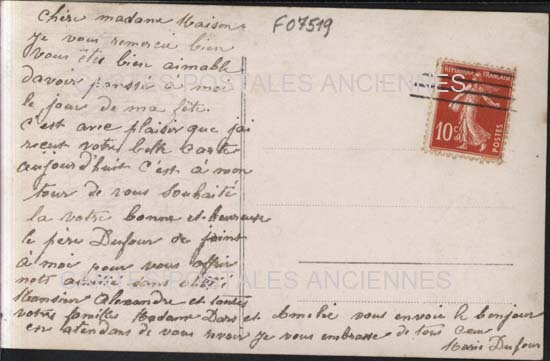 chère madame Maison
F07519
je vous remercie bien
vous êtes bien aimable
davoir pensser a moi
le jour de ma fête.
c'est avec plaisir que j'ai
recut votre belle carte
aujourd'huit c'est à mon
tour de vous souhaité
la votre bonne et heureuse
le père Dufour se joint
à moi pour vous offrir
nott amitié sans
Monsieur Alexandre et toutes
votre familles Madame et Amelie vous envoie le bonjour
en atendans de vous revoir je vous embrasse de tout cœur
Marie Dufour
REPUBLIQUE FRANÇAISE
10c
POSTES
CARTES POSTALES ANCIENNES
CARTES POSTALES ANCIENNES